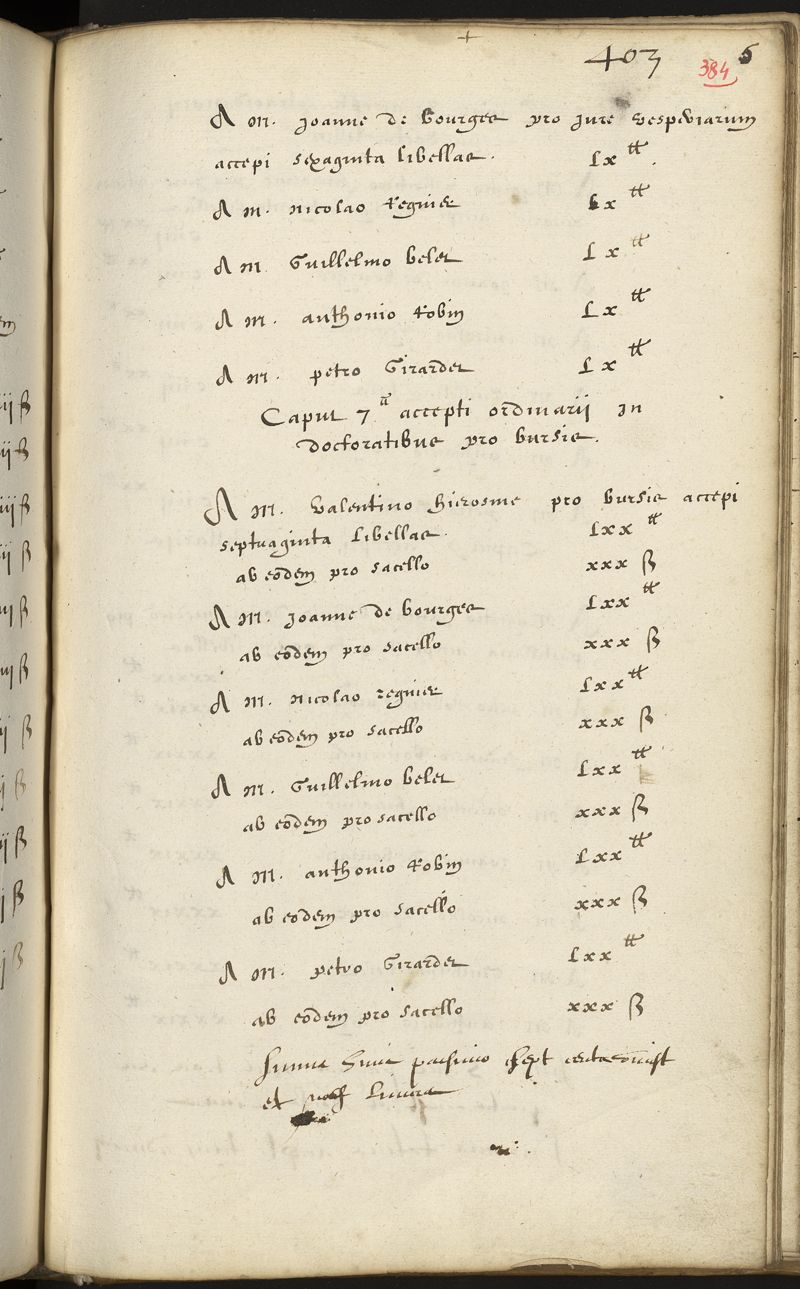 403 6
384
A M. Joanne de bourges pro jure vesperiarum
accepi sexaginta libellas. Lx ₶.
A M. nicolao Regnier Lx ₶
A M Guillelmo belet Lx ₶
A M. anthonio Robin Lx ₶
A M. petro Girardet Lx ₶
Caput 7ᵐ accepti ordinarii in
doctoratibus pro bursis.
A M. valentino hierosme pro bursis accepi
septuaginta libellas. Lxx ₶
ab eodem pro sacello xxx ß
A M. Joanne de bourges Lxx ₶
ab eodem pro sacello xxx ß
A M. nicolao regnier Lxx ₶
ab eodem pro sacello xxx ß
A M. Guillelmo belet Lxx ₶
ab eodem pro sacello xxx ß
A M. anthonio Robin Lxx ₶
ab eodem pro sacello xxx ß
A M. petro Girardet Lxx ₶
ab eodem pro sacello xxx ß
Summa huius sept
et